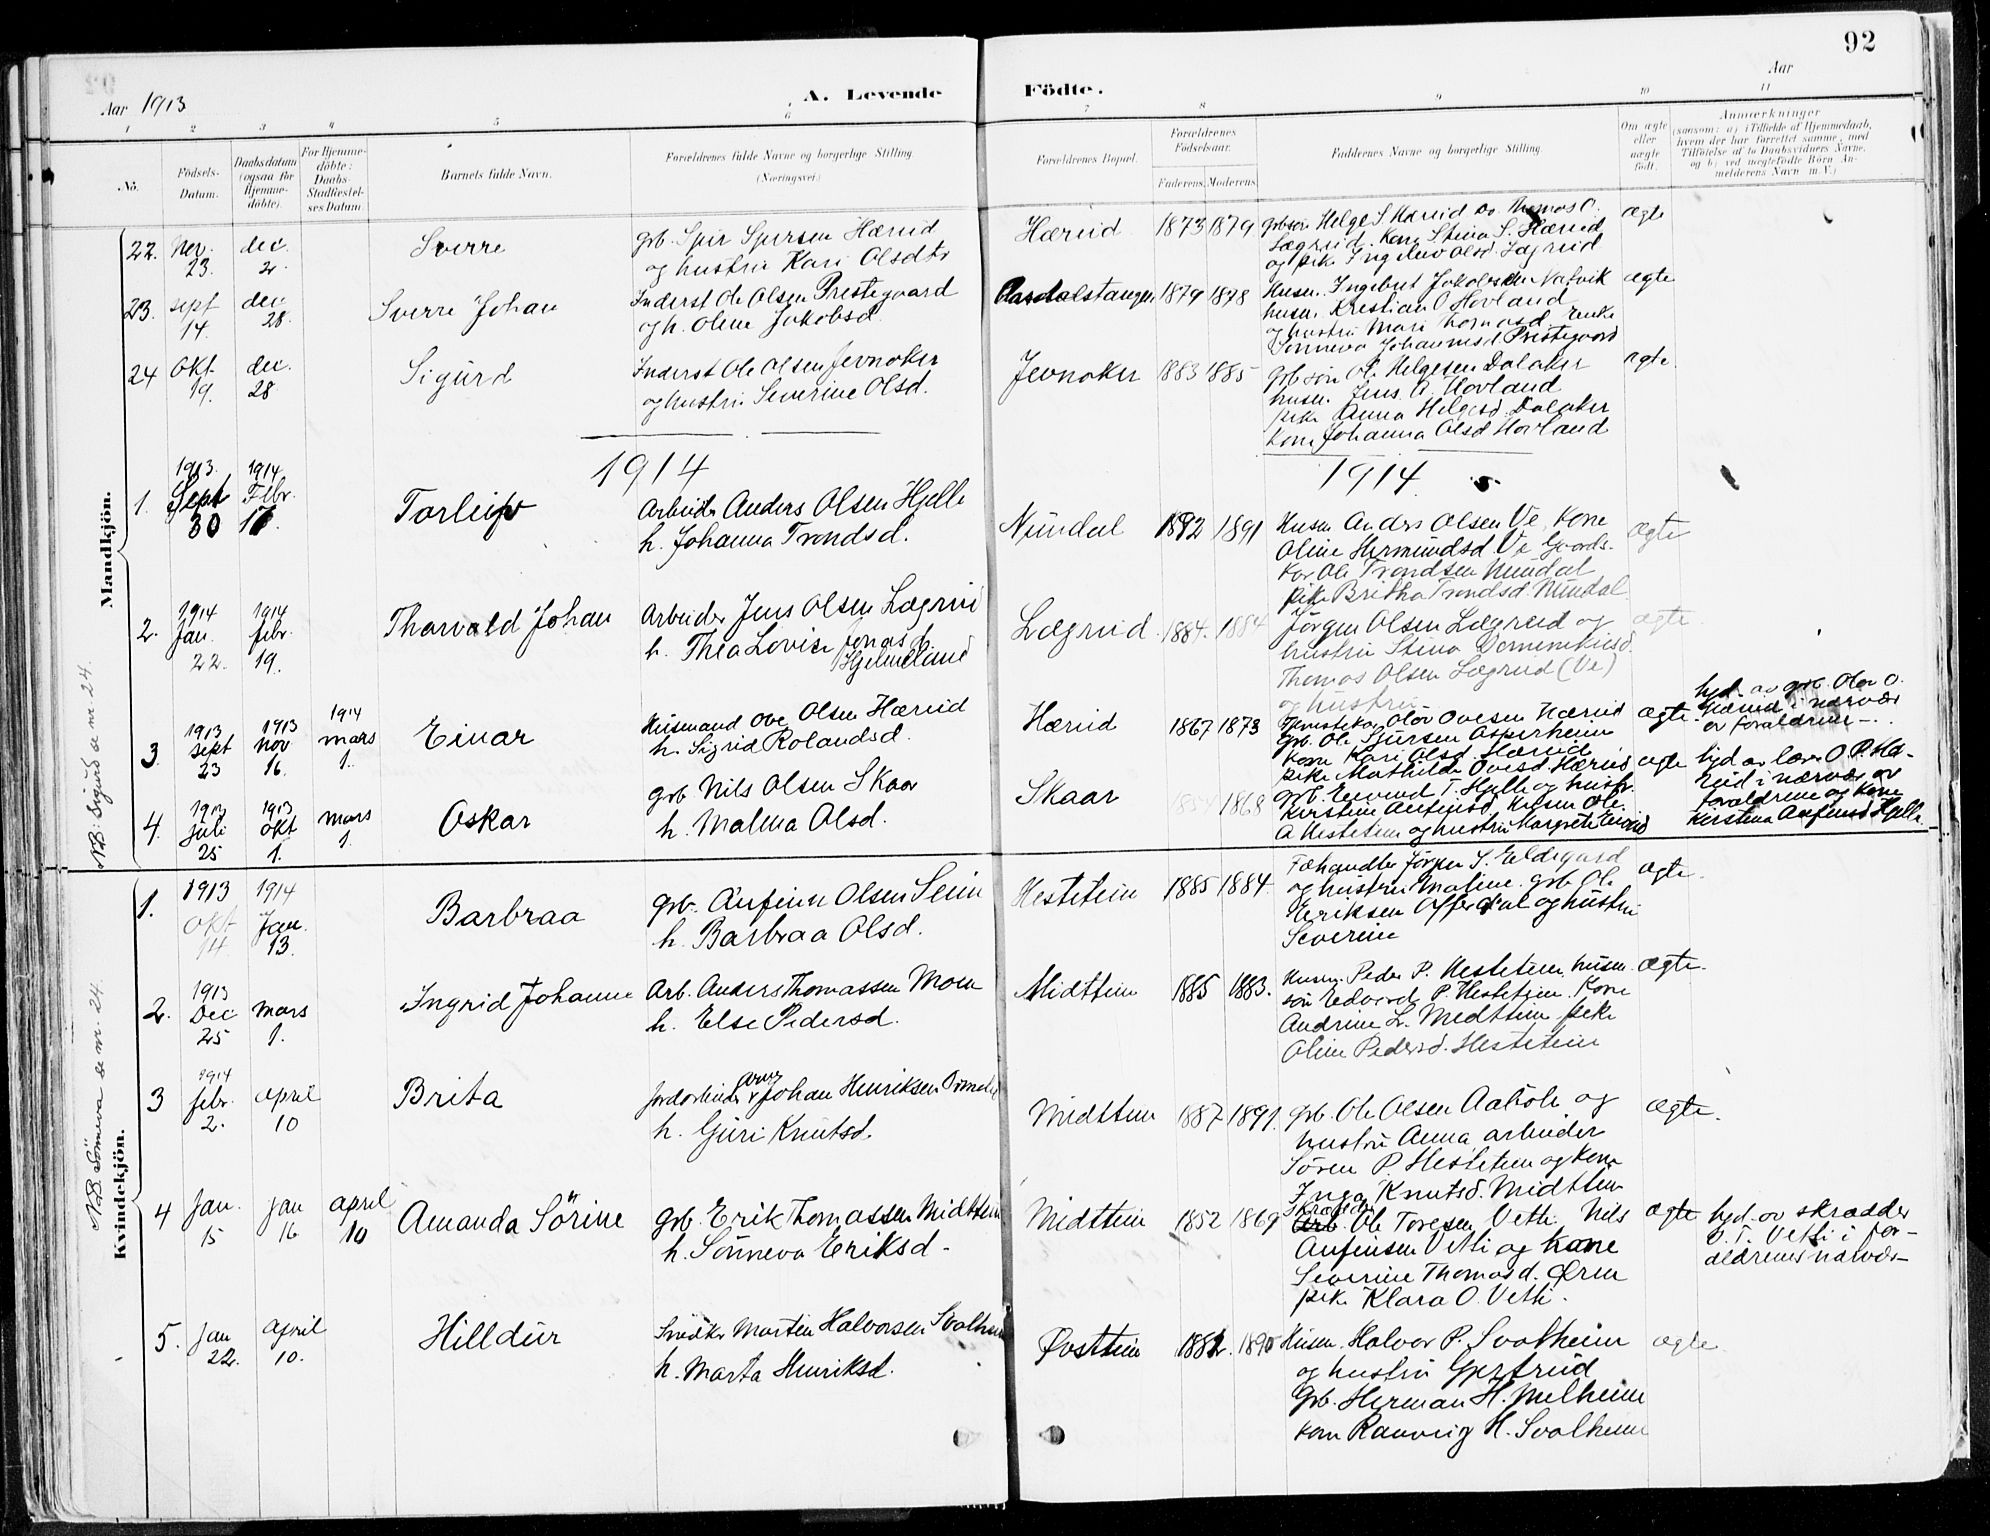 92
Aar 1913
A. Levende
Födte.
Aar
1 2 3 4 5 6 7 8 9 10 11
No.
Födsels-
Datum.
Daabsdatum
(ogsaa for
Hjemme-
döbte).
For Hjemme-
döbte:
Daabs-
Stadfæstel-
ses Datum.
Barnets fulde Navn.
Forældrenes fulde Navne og borgerlige Stilling.
(Næringsvei.)
Forældrenes Bopæl.
Forældrenes
Födselsaar.
Faderens. Moderens.
Faddernes Navne og borgerlige Stilling.
Om ægte
eller
uægte
født.
Anmærkninger
(saasom: a) i Tilfælde af Hjemmedaab,
hvem der har forrettet samme, med
Tilföielse af to Daabsvidners Navne,
og b) ved uægtefödte Börn An-
melderens Navn m. V.)
Mandkjön.
22. Nov. 23. dec. 2.
Sverre
grb. Spir Spirsen Hæreid
og hustru Kari Olsdtr
Hæreid 1873 1879
grbsøn Helge S Hæreid Thomas O.
Lægreid. Kone Stina S. Hæreid
og pike Ingeleiv Olsd. Lægreid
ægte
23. sept 14. dec 28.
Sverre Johan
Inderst Ole Olsen Prestegaard
og h. Oline Jokobsd.
Aardalstangen 1879 1878
Husm. Ingebrt Jakobsen Natvik
husm. Krestian O Hovland
og hustru Mari Thomasd Enke
Sönneva Johannesd Prestegaard
ægte
24 Okt 19. dec. 28
Sigurd
Inderst Ole Olsen Jevnaker
og hustru Severine Olsd.
Jevnaker 1883 1885
Grbsøn Ole Helgesen Dalaker
husm. Jens A. Hovland
pike Anna Helgesd. Dalaker
Kone Johanna Olsd Hovland
ægte
1914
1914.
1. 1913. Sept 30 1914 Febr. 17.
Torleif
Arbeider Anders Olsen Hjelle
h. Johanna Trondsd.
Nundal 1892 1891
Husm Anders Olsen Ve, Kone
Oline Hermundsd Ve Gaards-
kar Ole Trondsen Nundal
pike Britha Trondsd. Nundal
ægte
2. 1914 Jan. 22. 1914 febr. 19.
Tharvald Johan
Arbeider Jens Olsen Lægreid
h. Thea Lovise Jonas d.
Hjelmeland
Lægreid 1884. 1884
Jörgen Olsen Lægreid og
hustru Stina
Thomas Olsen Lægreid (Ve)
og hustru
ægte.
3. 1913 sept 23 1913 nov 16. 1914 mars 1.
Einar
Husmand Ove Olsen Hæreid
h. Sigrid Rolandsd.
Hæreid 1867 1873
Tjenestekar Olov Ovesen Hæreid
grb. Ole Sjursen Asperheim
Kone Kari Olsd. Hæreid
pike Mathilde Ovesd Hæreid
ægte.
hjd. av grb. Olav O.
Hæreid i nærvær
av forældrene —.
4. 1913 juli 25 1913 okt 1. mars 1.
Oskar
grb. Nils Olsen Skaar
h. Malena Olsd.
Skaar 1854 1868
grb. Eivind T. Hjelle og hustr.
Kirstine Anfinsd, Husm Ole
A Hestetein og hustru Margrete Eivind
ægte
hjd av lærer O P Hæ-
reid i nærvær av
forældrene og kone
Kerstina Anfinsd Hjelle.
NB. Sigurd se nr. 24.
Kvindekjön.
1. 1913 Okt 14 1914 Jan. 13.
Barbraa
grb. Anfinn Olsen Seim
h. Barbraa Olsd.
Hestetein 1885 1884.
Fæhandler Jörgen S. Eldegard
og hustru Maline. grb. Ole
Eriksen Afferdal og hustru
Severine
ægte.
2. 1913 Dec 25 mars 1.
Ingrid Johanne
Arb. Anders Thomassen Moen
h. Else Pedersd.
Midttein 1885 1883.
Husm. Peder P. Hestetein, husm.
søn Edvard P. Hestetein. Kone
Andrine L. Midttein pike
Oline Pedersd. Hestetein
ægte.
3 1914 febr. 2. april 10
Brita
Jordarbeider Johan Henriksen
h. Guri Knutsd.
Midttein 1887 1891.
grb. Ole Olsen Aabøle og
hustru Anna arbeider
Sören P. Hestetein og Kone
Inga Knutsd. Midttein
ægte.
4 Jan. 15 Jan 16 april 10
Amanda Sörine
grb. Erik Thomassen Midttein
h. Sönneva Eriksd.
Midttein 1852 1869
Skræder
Ole Toresen Vetti. Nils
Anfinsen Vetti og Kone
Severine Thomasd. Øren
pike Klara O. Vetti.
ægte
hjd. av skrædder
O. T. Vetti i for-
ældrenes nærvær
5. Jan 22. april 10.
Hilldur
Snedker Martin Halvorsen Svalheim
h. Marta Henriksd.
Øvsttein 1882. 1890
Husm. Halvor P. Svalheim
og hustru Gjertrud
Grb. Herman H. Melheim
kone Ranveig H. Svalheim
ægte.
NB. Sönneva se nr. 24.